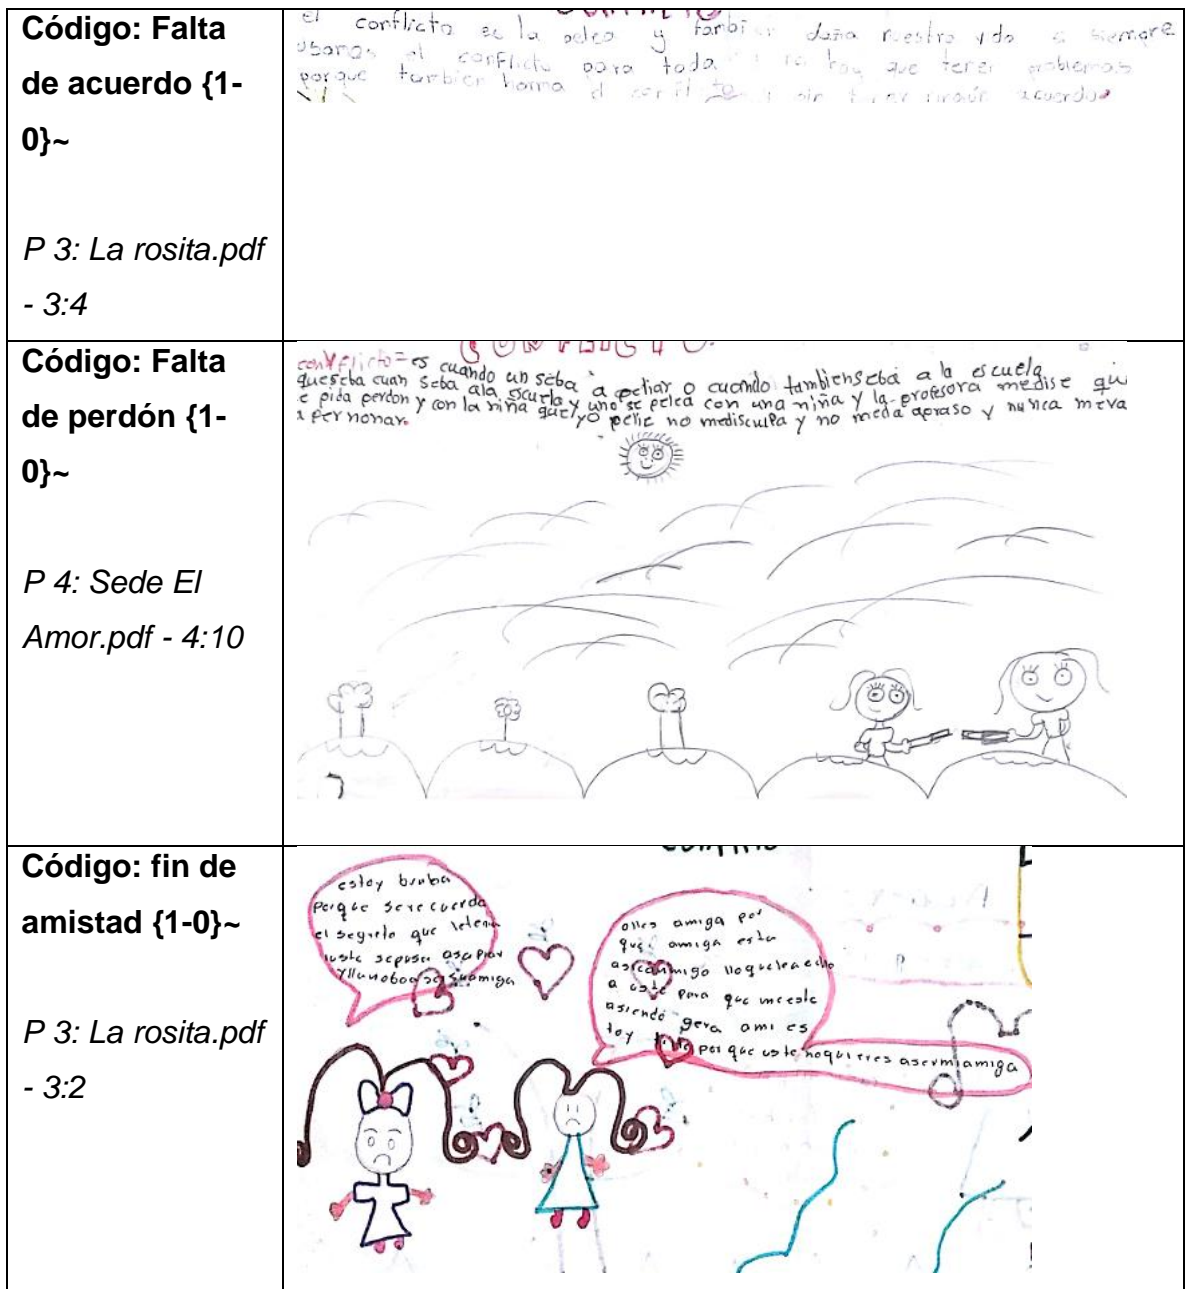 Código: Falta
de acuerdo {1-
0}~
P 3: La rosita.pdf
- 3:4
el conflicto es la pelea y también daña nuestra vida si siempre
usamos el conflicto para toda no hay que tener problemas
porque tambien el conflicto sin tener ningún acuerdo
Código: Falta
de perdón {1-
0}~
P 4: Sede El
Amor.pdf - 4:10
CONFLICTO
conflicto= es cuando un seba a peliar o cuando tambien seba a la escuela
queseba cuan seba ala escuela y uno se pelea con una niña y la profesora medise qui
e pida perdon y con la niña que yo pelie no medisculpa y no meda abraso y nunca meva
a pernonar.
Código: fin de
amistad {1-0}~
P 3: La rosita.pdf
- 3:2
estoy braba
porque serecuerda
el segreto que
uste sepuso
amiga
olles amiga por
que amiga esta
asicanmigo lloquelea echo
a uste para que meeste
asiendo gera ami es
toy triste por que uste noquieres asermiamiga